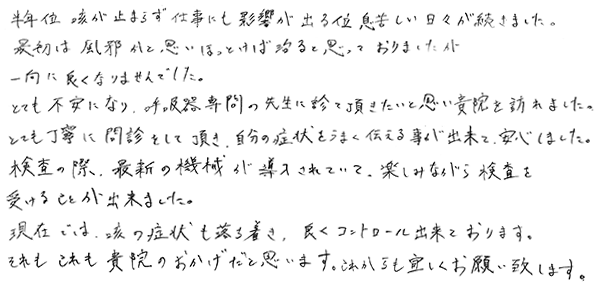 半年位 咳が止まらず仕事にも影響が出る位息苦しい日々が続きました。
最初は風邪かと思いほっとけば治ると思っておりましたが
一向に良くなりませんでした。
とても不安になり、呼吸器専門の先生に診て頂きたいと思い貴院を訪れました。
とても丁寧に問診をして頂き、自分の症状をうまく伝える事が出来て、安心しました。
検査の際、最新の機械が導入されていて、楽しみながら検査を
受けることが出来ました。
現在では、咳の症状も落ち着き、良くコントロール出来ております。
それもこれも貴院のおかげだと思います。これからも宜しくお願い致します。